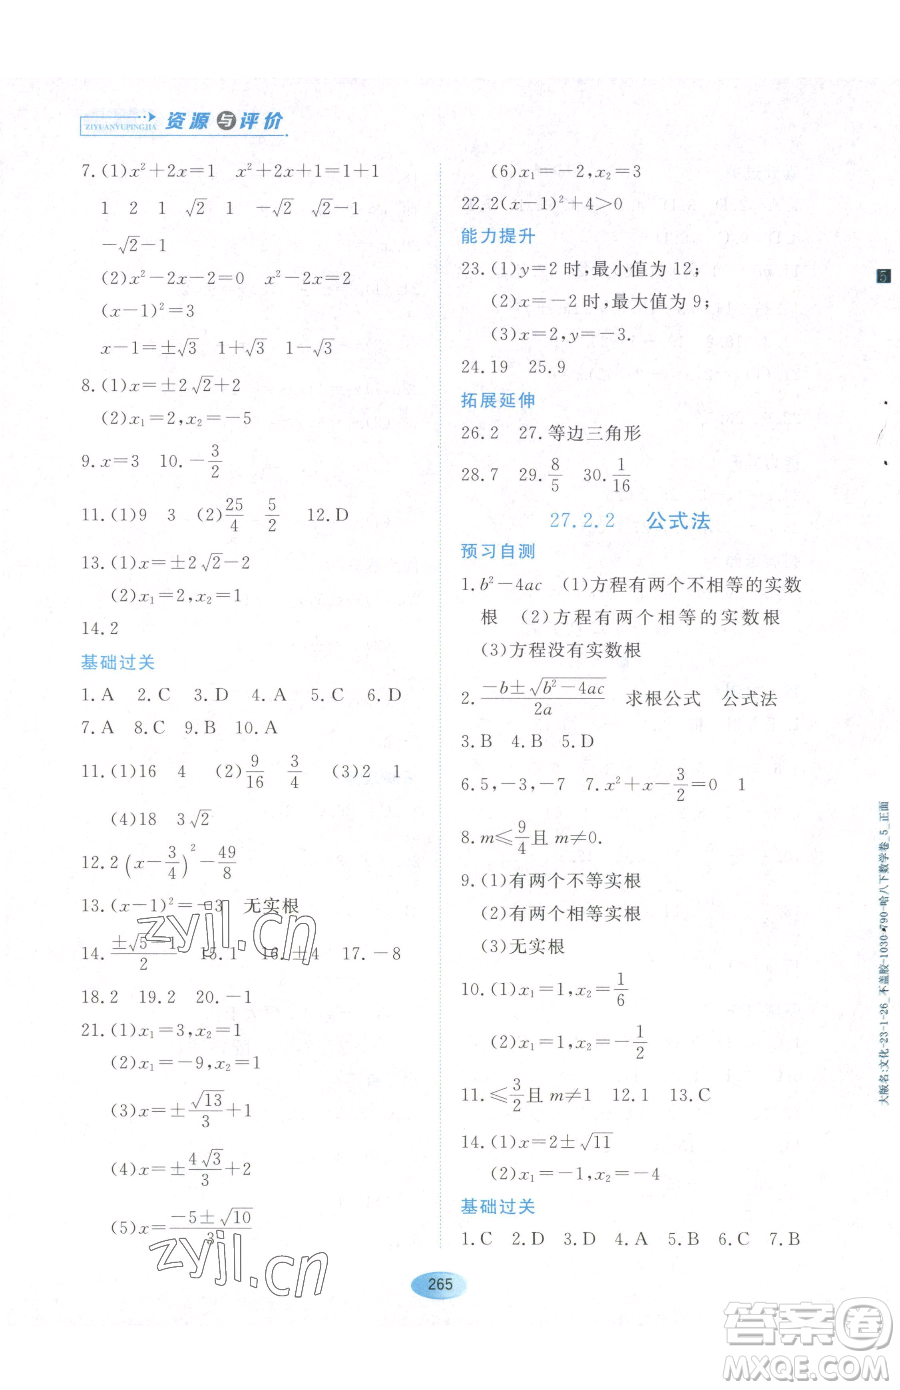 ZIYUANYUPINGJIA 资源与评价
7.(1)x²+2x=1 x²+2x+1=1+1
1 2 1 √2 1 -√2 √2-1
-√2-1
(2)x²-2x-2=0 x²-2x=2
(x-1)²=3
x-1=±√3 1+√3 1-√3
8.(1)x=±2√2+2
(2)x₁=2,x₂=-5
9.x=3 10.-3/2
11.(1)9 3 (2)25/4 5/2 12.D
13.(1)x=±2√2-2
(2)x₁=2,x₂=1
14.2
基础过关
1.A 2.C 3.D 4.A 5.C 6.D
7.A 8.C 9.B 10.A
11.(1)16 4 (2)9/16 3/4 (3)2 1
(4)18 3√2
12.2(x-3/4)²-49/8
13.(x-1)²=-3 无实根
14.(±√5-1)/2 15.1 16.±4 17.-8
18.2 19.2 20.-1
21.(1)x₁=3,x₂=1
(2)x₁=-9,x₂=1
(3)x=±√13/3+1
(4)x=±4√3/3+2
(5)x=(-5±√10)/3
(6)x₁=-2,x₂=3
22.2(x-1)²+4>0
能力提升
23.(1)y=2时,最小值为12;
(2)x=-2时,最大值为9;
(3)x=2,y=-3.
24.19 25.9
拓展延伸
26.2 27.等边三角形
28.7 29.8/5 30.1/16
27.2.2 公式法
预习自测
1.b²-4ac (1)方程有两个不相等的实数
根 (2)方程有两个相等的实数根
(3)方程没有实数根
2.(-b±√(b²-4ac))/2a 求根公式 公式法
3.B 4.B 5.D
6.5,-3,-7 7.x²+x-3/2=0 1
8.m≤9/4且m≠0.
9.(1)有两个不等实根
(2)有两个相等实根
(3)无实根
10.(1)x₁=1,x₂=1/6
(2)x₁=1,x₂=-1/2
11.≤3/2且m≠1 12.C 13.C
14.(1)x=2±√11
(2)x₁=-1,x₂=-4
基础过关
1.C 2.D 3.D 4.A 5.A 6.C 7.B
265
5
大版名:文化-23-1-26_不盖胶-1030*790-哈八下数学卷_5_正面
zyjl.cn
zyjl.cn
答案圈
MXQE.COM